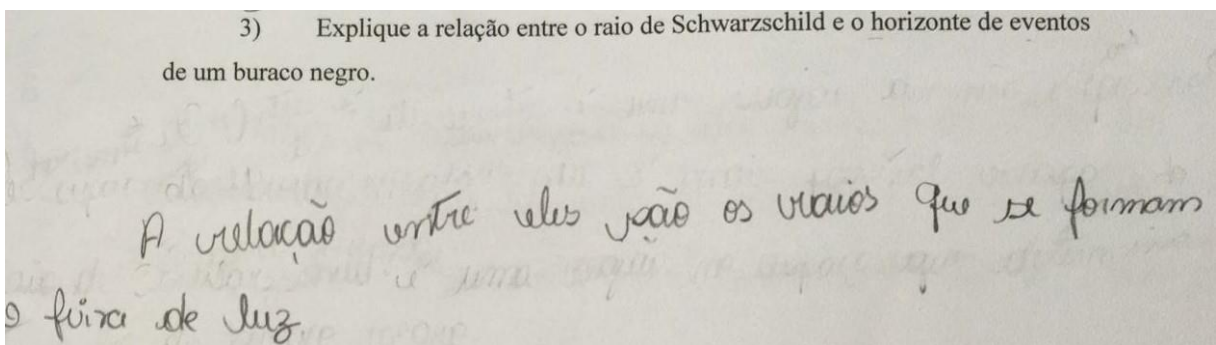 3) Explique a relação entre o raio de Schwarzschild e o horizonte de eventos
de um buraco negro.
A relação entre eles são os raios que se formam
de luz